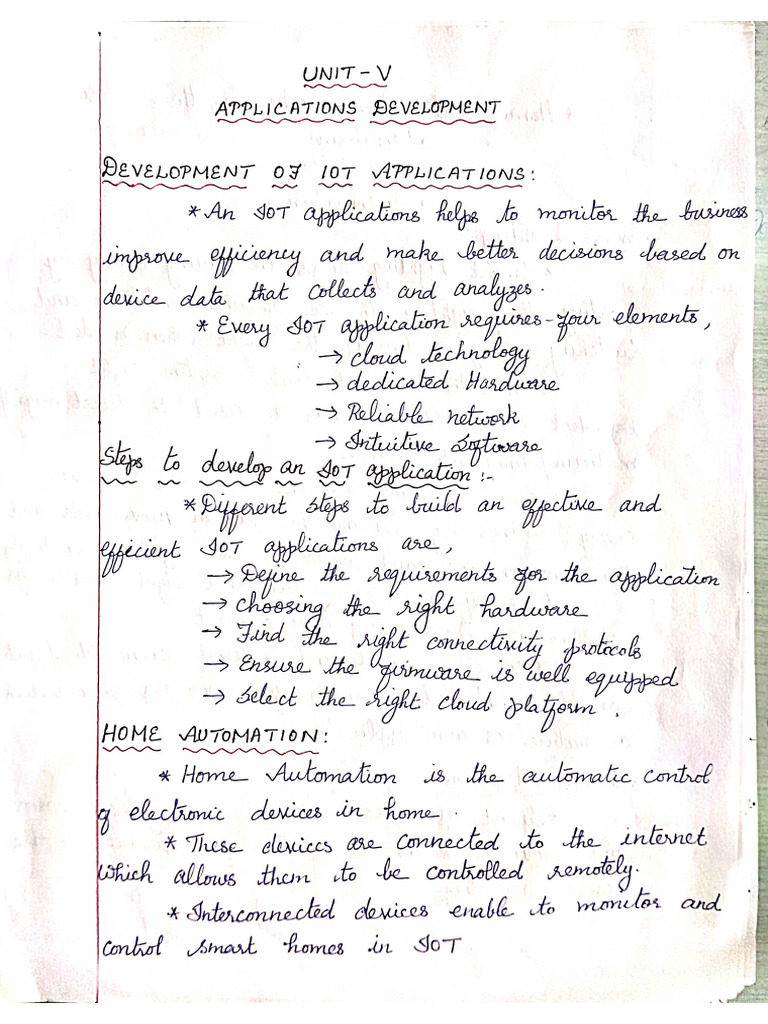 UNIT-V
APPLICATIONS DEVELOPMENT
DEVELOPMENT OF IOT APPLICATIONS:
* An IOT applications helps to monitor the business
improve efficiency and make better decisions based on
device data that collects and analyzes.
* Every IOT application requires four elements,
→ cloud technology
→ dedicated Hardware
→ Reliable network
→ Intuitive Software
Steps to develop an IOT application:-
* Different steps to build an effective and
efficient IOT applications are,
→ Define the requirements for the application
→ choosing the right hardware
→ Find the right connectivity protocols
→ Ensure the firmware is well equipped
→ Select the right cloud platform.
HOME AUTOMATION:
* Home Automation is the automatic control
of electronic devices in home.
* These devices are connected to the internet
which allows them to be controlled remotely.
* Interconnected devices enable to monitor and
control smart homes in IOT